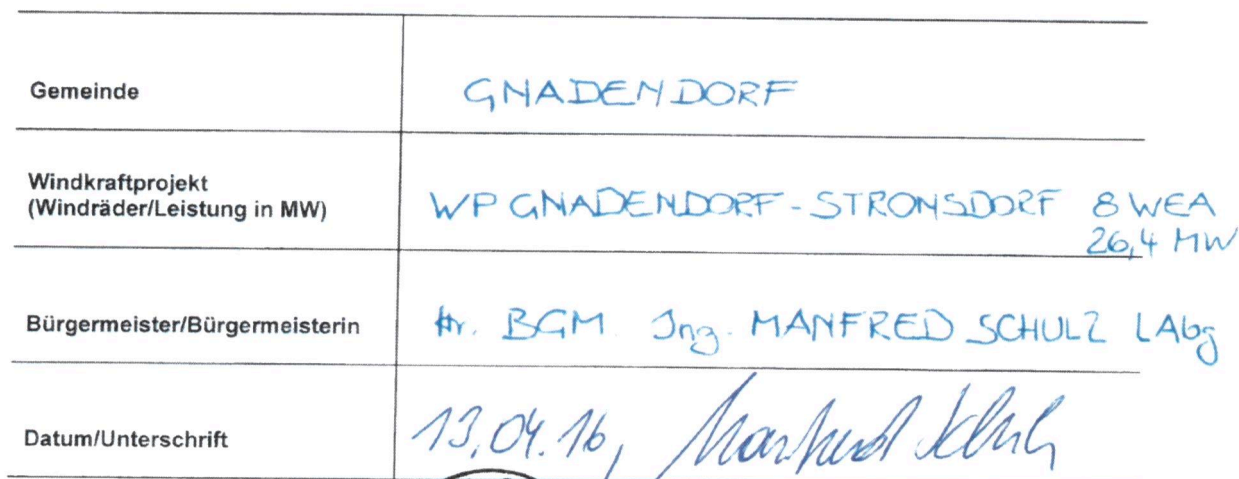 Gemeinde
GNADENDORF
Windkraftprojekt
(Windräder/Leistung in MW)
WP GNADENDORF-STRONSDORF 8 WEA
26,4 MW
Bürgermeister/Bürgermeisterin
Hr. BGM. Ing. MANFRED SCHULZ LAbg
Datum/Unterschrift
13.04.16, Manfred Schulz